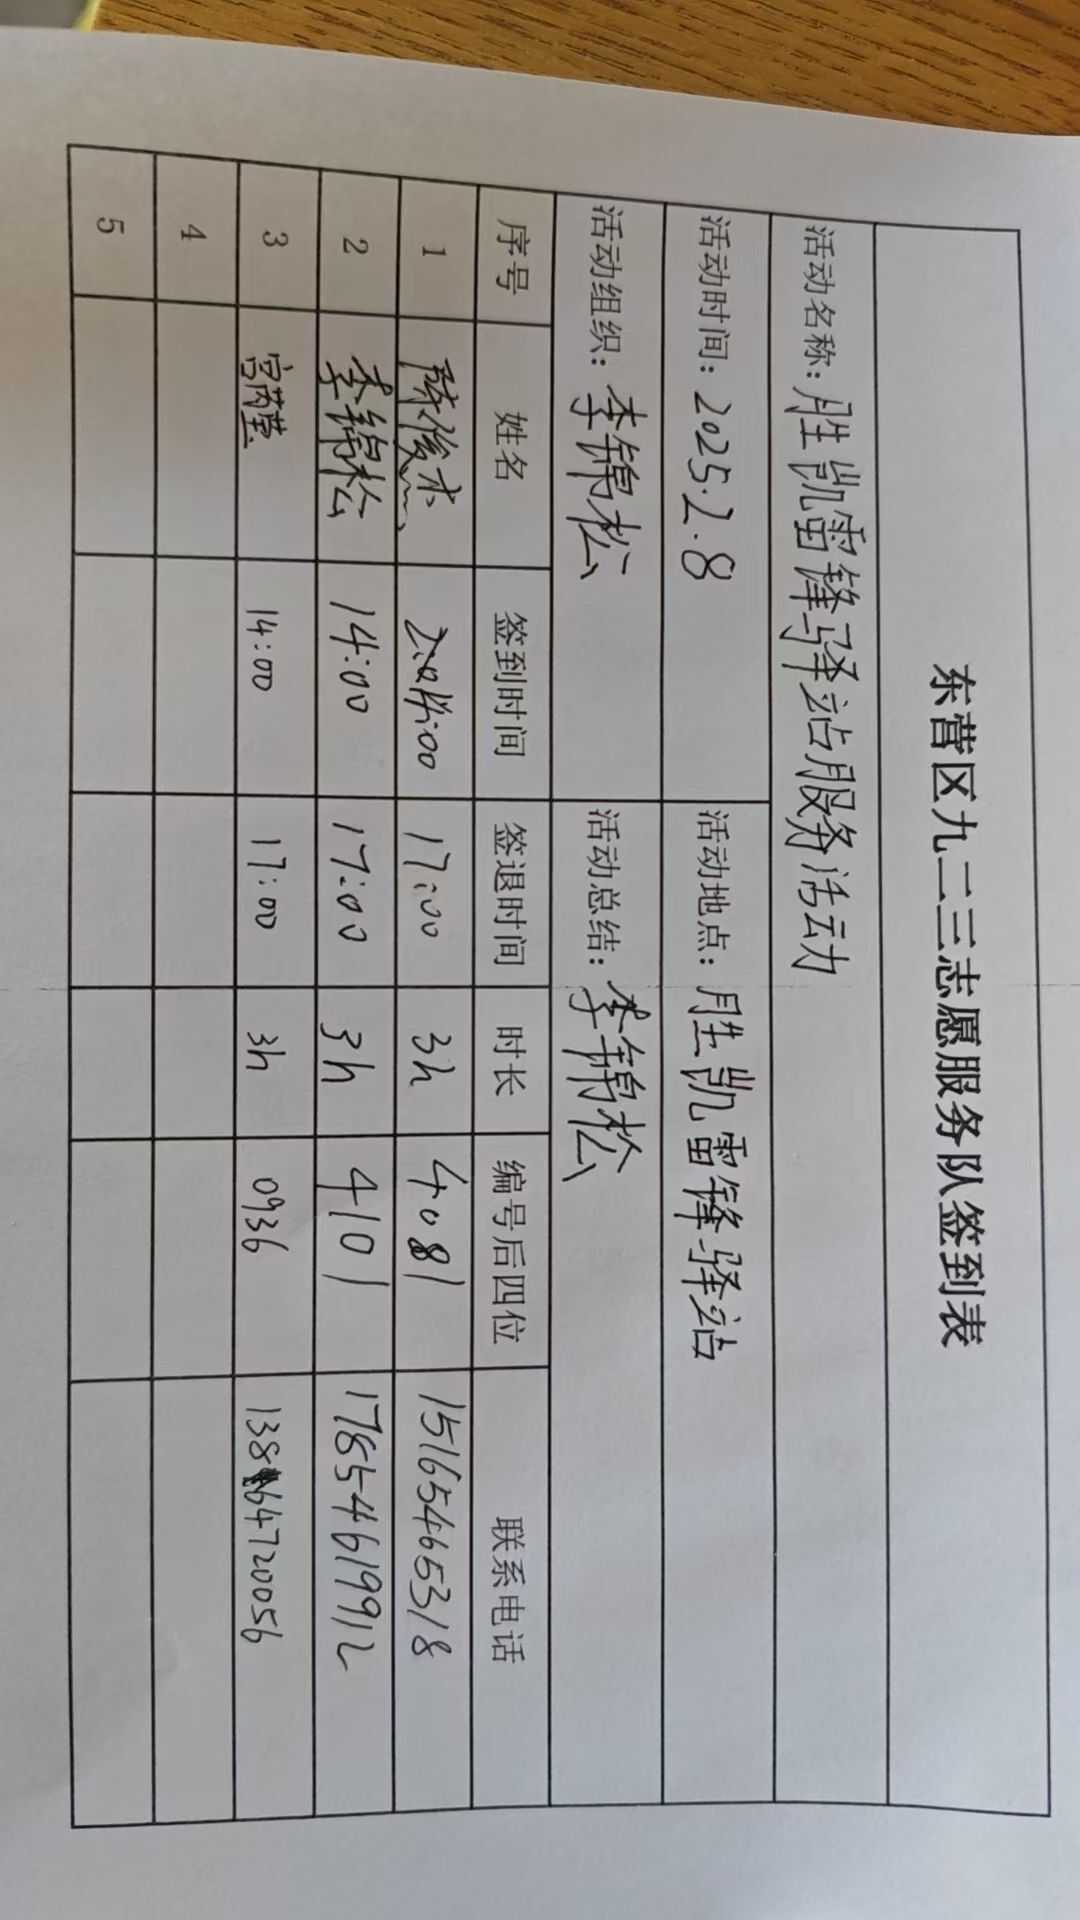 东营区九二三志愿服务队签到表
活动名称：胜凯雷锋驿站服务活动
活动时间：2025.2.8 活动地点：胜凯雷锋驿站
活动组织：李锦松 活动总结：李锦松
序号 姓名 签到时间 签退时间 时长 编号后四位 联系电话
1 陈俊术 14:00 17:00 3h 4081 15165465318
2 李锦松 14:00 17:00 3h 4101 17854619912
3 宫芮莹 14:00 17:00 3h 0936 13864720056
4
5